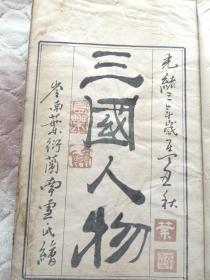 光緒三年歲在丁丑秋
三國人物
岺南葉衍蘭南雪氏繪